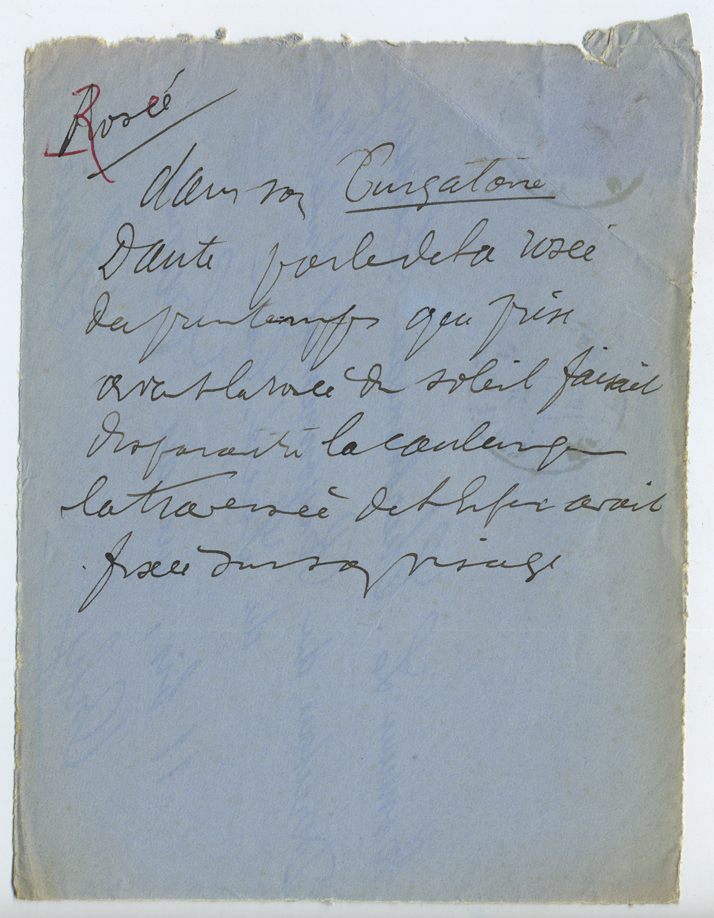 Rosée
dans son Purgatoire
Dante parle de la rosée
du printemps que prise
avant la rosée du soleil faisait
disparaitre la couleur que
la traversée de l'Enfer avait
fixée sur son visage